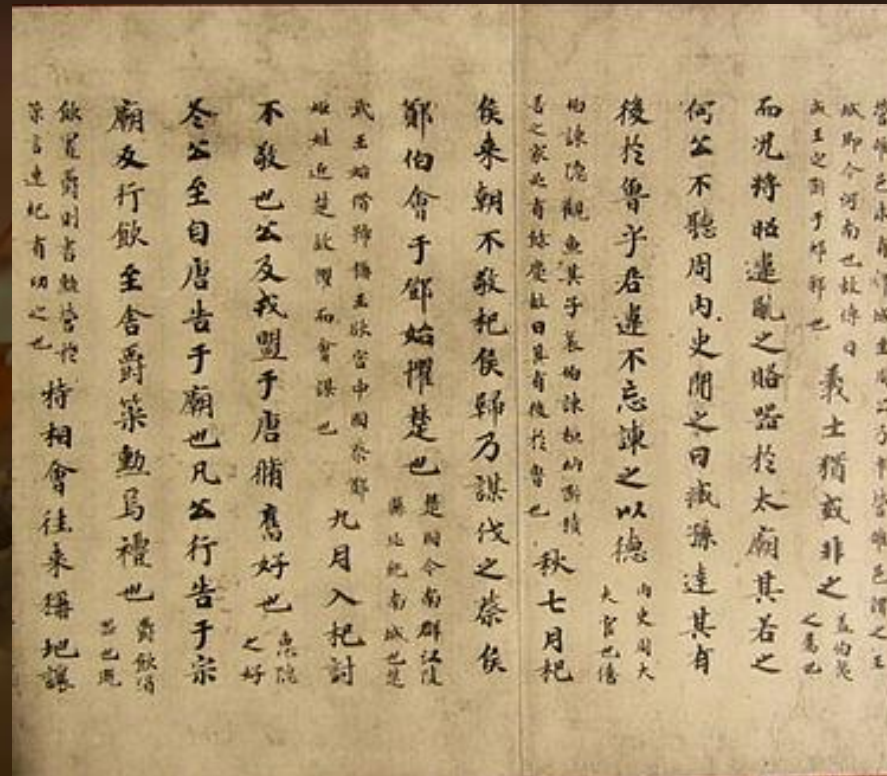 雒邑謂之王
城即今河南也故傳曰
成王定鼎于郟鄏也
義士猶或非之
蓋伯夷
之屬也
而況將昭違亂之賂器於太廟其若之
何公不聽周內史聞之曰臧孫達其有
後於魯乎君違不忘諫之以德
內史周大
夫官也僖
伯諫隱觀魚其子哀伯諫桓納鼎積
善之家必有餘慶故曰其有後於魯也
秋七月杞
侯来朝不敬杞侯歸乃謀伐之蔡侯
鄭伯會于鄧始懼楚也
楚國今南郡江陵
縣北紀南城也楚
武王始僭號稱王欲害中國蔡鄭
姬姓近楚故懼而會謀也
九月入杞討
不敬也公及戎盟于唐脩舊好也
惠隱
之好
冬公至自唐告于廟也凡公行告于宗
廟反行飲至舍爵策勳焉禮也
爵飲酒
器也既
飲置爵則書勳勞於
策言速紀有功之也
特相會往来稱地讓